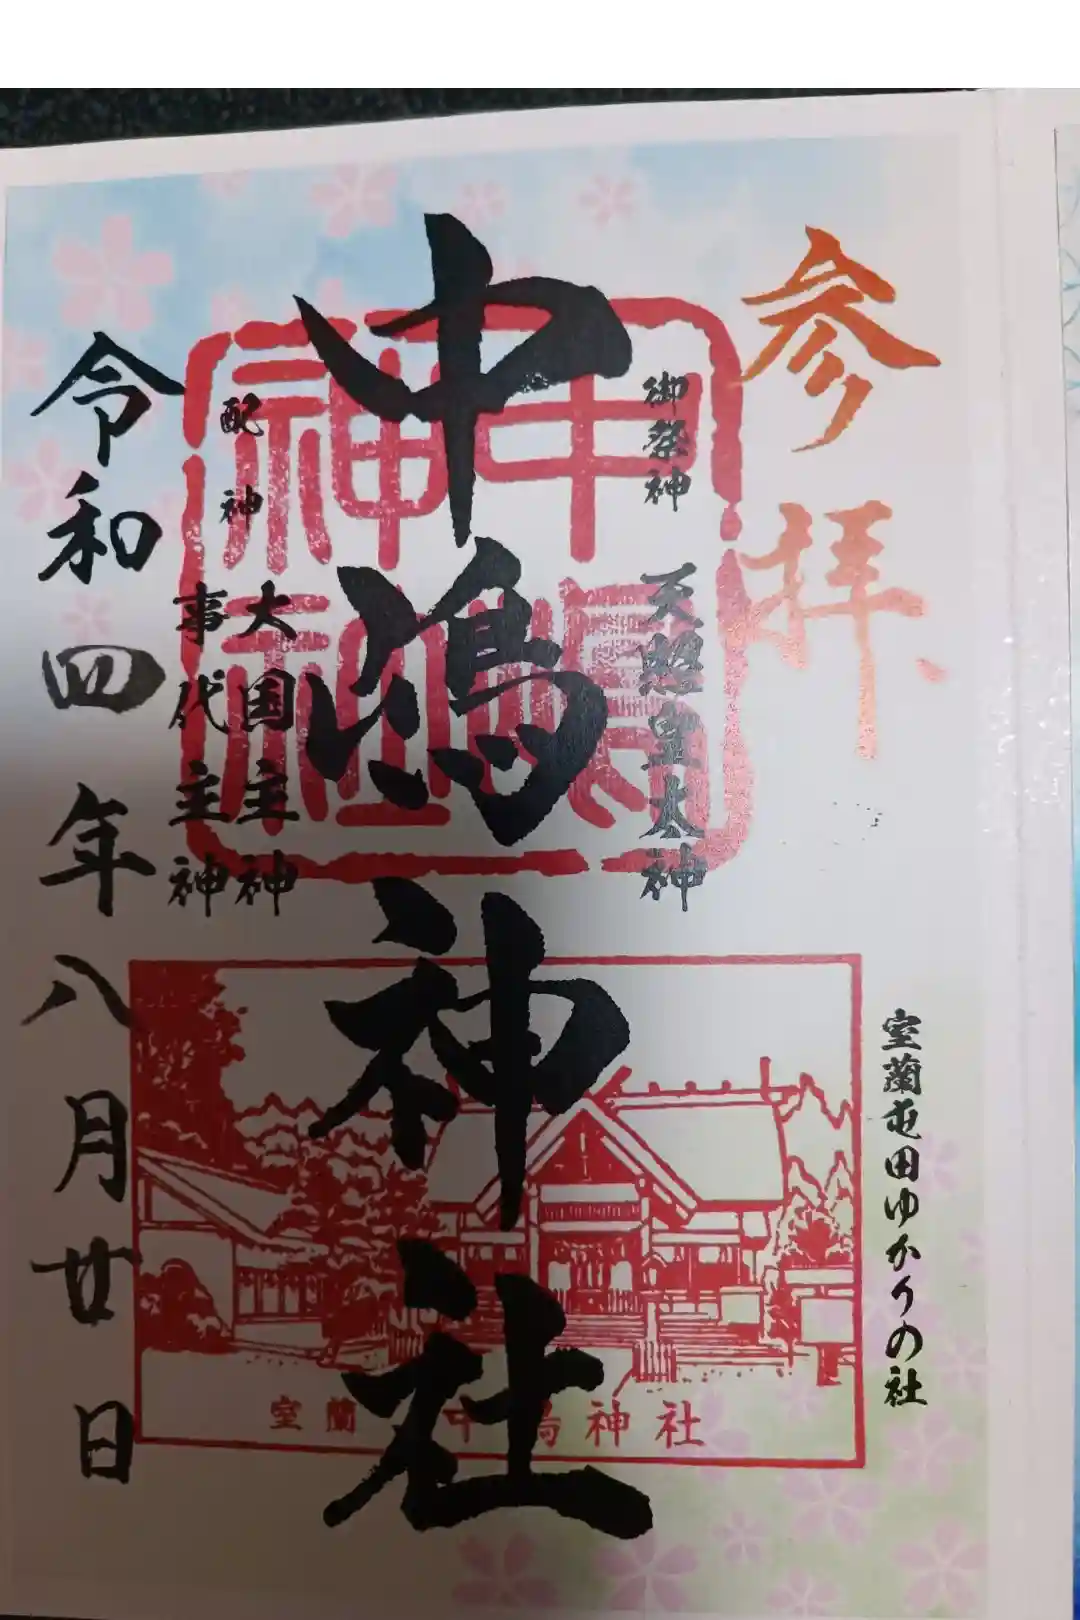 参拝
室蘭屯田ゆかりの社
御祭神
天照皇太神
中嶋神社
中嶋神社
配神
大国主神
事代主神
令和四年八月廿日
室蘭 中嶋神社